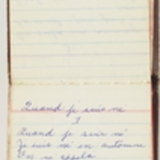 Quand je suis né
I
Quand je suis né
Je suis né en automne
On m'appela